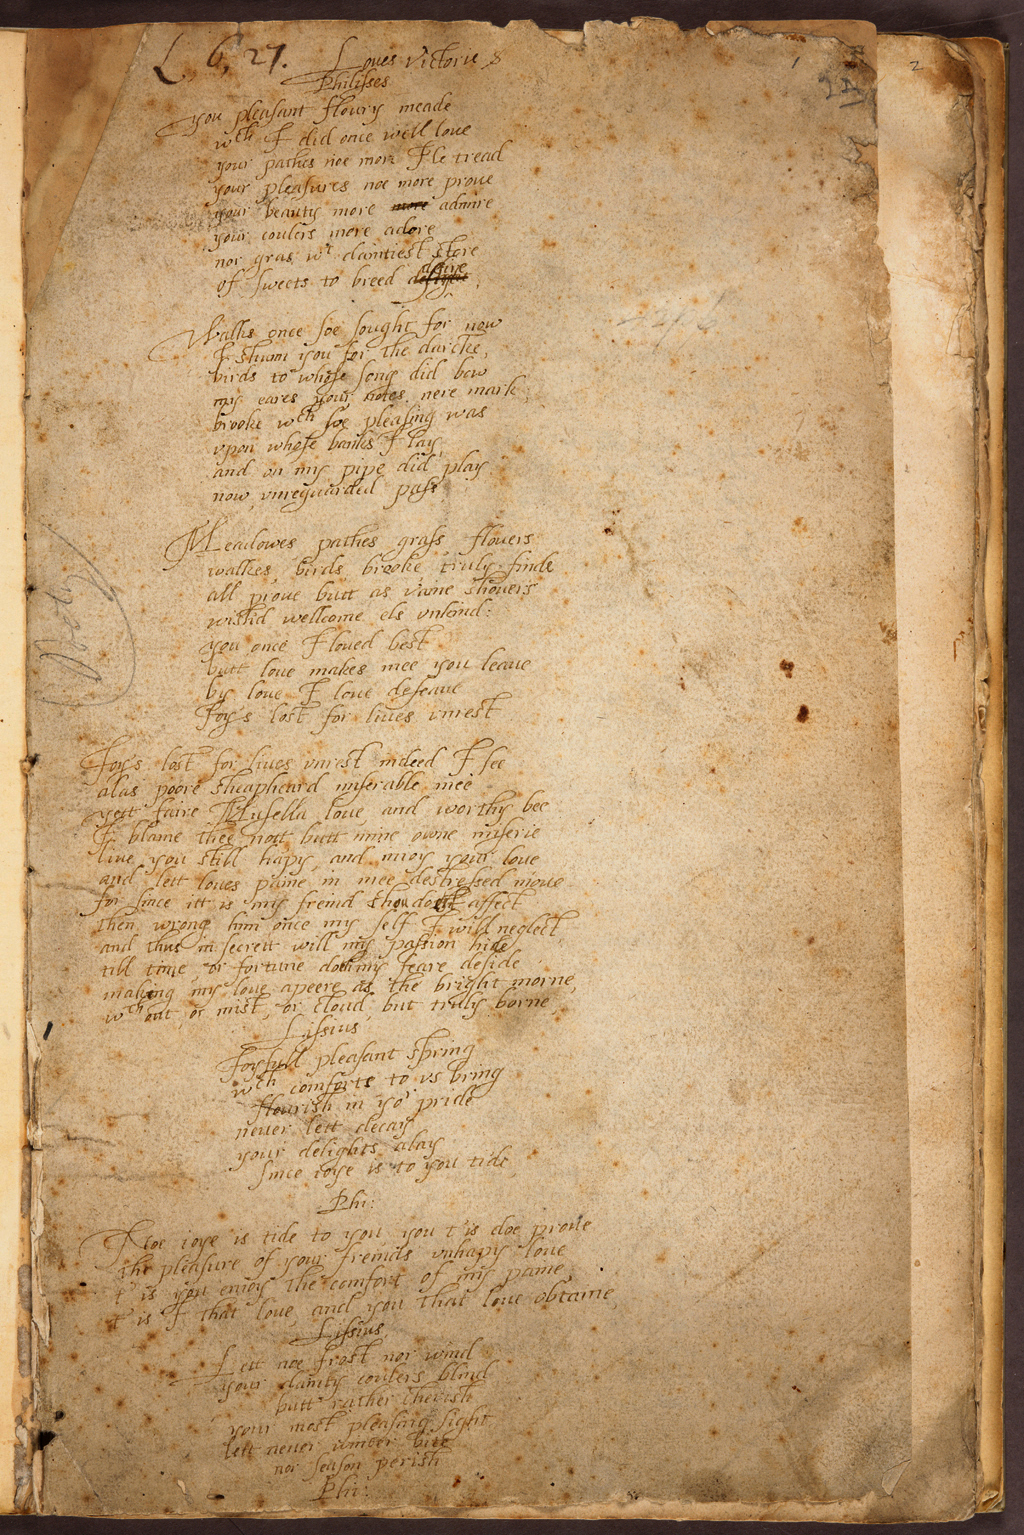 L 6, 27.
Loues victorie
Philisses
You pleasant floury meade
wch I did once well love
your pathes noe more I'le tread
your pleasures noe more proue
your beauty more more admire
your coulers more adore
nor gras wt daintiest store
of sweets to breed desire

Walks once soe sought for now
I shunn you for the darcke,
birds to whose song did bow
my eares your notes nere mark,
brooke wch soe pleasing was
vpon whose banks I lay,
and on my pipe did play
now, vnreguarded pass,

Meadowes, pathes, grass, flouers
walkes, birds, brooke, truly finde
all proue butt as vaine shouers
wisht'd wellcome els vnkind:
you once I loued best
butt loue makes mee you leaue
by loue I loue deseaue
Joy's lost for liues vnrest

Joy's lost for liues vnrest indeed I see
alas poore sheapheard miserable mee
yett faire Musella loue, and worthy bee
I blame thee nott butt mine owne miserie
liue you still hapy, and injoy your loue
and lett loues paine in mee destressed moue
for since itt is my freind thou doest affect
then wrong him once my self I will neglect
and thus in secrett will my passion hide
till time, or fortune doth my feare deside
making my loue apeere as the bright morne,
wthout, or mist, or cloud, but truly borne,
Lissius
Joyfull pleasant spring
wch comforts to vs bring
flourish in yor pride
neuer lett decay
your delights alay
since ioye is to you tide,
Phi:
Noe ioye is tide to you, you t'is doe proue
the pleasure of your freinds vnhapy loue
t'is you enioy the comfort of my paine
t'is I that loue, and you that loue obtaine,
Lissius
Lett noe frost nor wind
your dainty coulers blind
butt rather cherish
your most pleasing sight
lett neuer winter bite
nor season perish
Phi:
2